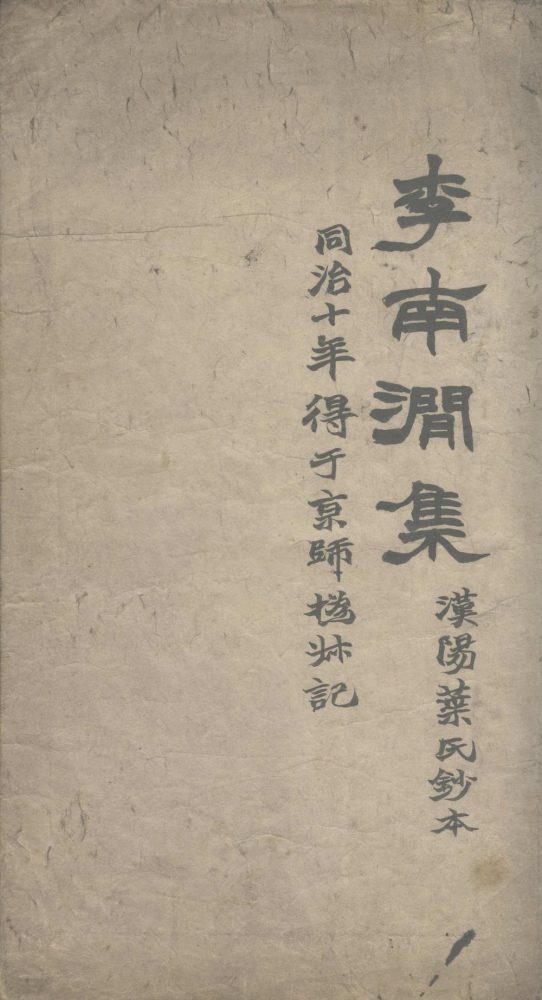 李南澗集
漢陽葉氏鈔本
同治十年得于京師撝叔記